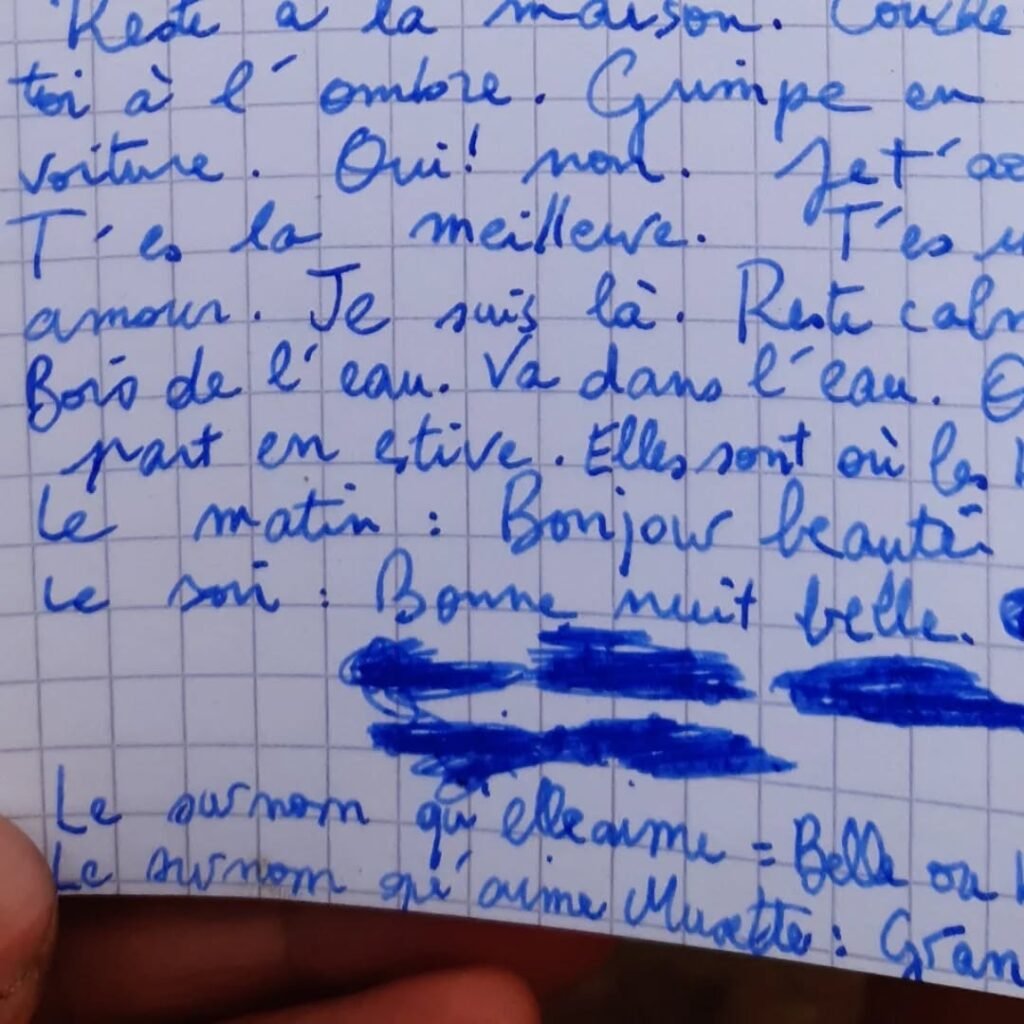 Reste à la maison. Couche
toi à l'ombre. Grimpe en
voiture. Oui! non. Je t'
T'es la meilleure. T'es
amour. Je suis là. Reste
Bois de l'eau. Va dans l'eau.
part en estive. Elles sont où les
Le matin : Bonjour beauté
Le soir : Bonne nuit belle.
Le surnom qu'elle aime = Belle ou
Le surnom qu'aime Musette :